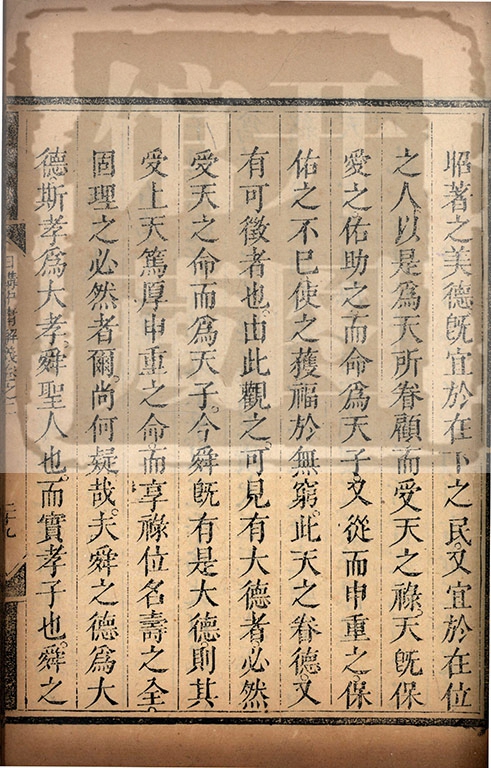 昭著之美德旣宜於在下之民又宜於在位
之人以是爲天所眷顧而受天之祿天旣保
愛之佑助之而命爲天子又從而申重之保
佑之不已使之獲福於無窮此天之眷德又
有可徵者也由此觀之可見有大德者必然
受天之命而爲天子今舜旣有是大德則其
受上天篤厚申重之命而享祿位名壽之全
固理之必然者爾尚何疑哉夫舜之德爲大
德斯孝爲大孝舜聖人也而實孝子也舜之
日講中庸解義卷之二
二十九